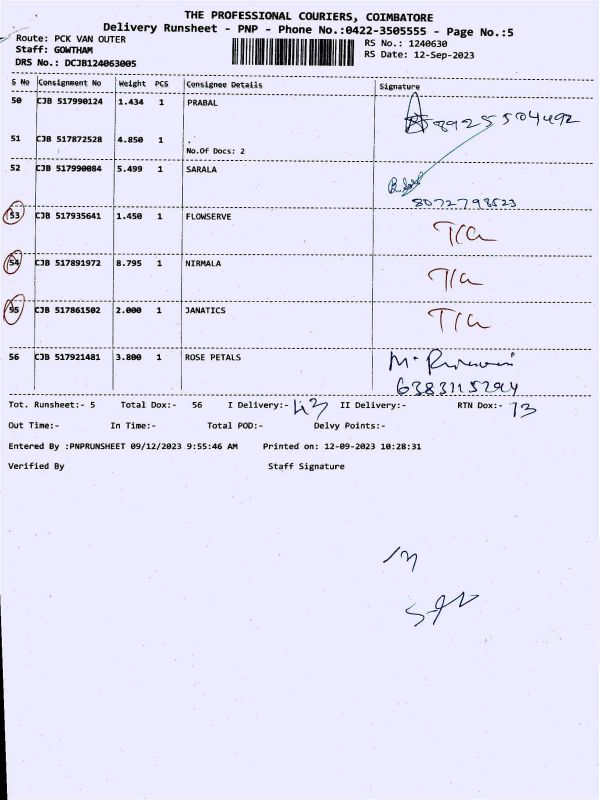 THE PROFESSIONAL COURIERS, COIMBATORE
Delivery Runsheet - PNP - Phone No.:0422-3505555 - Page No.:5
Route: PCK VAN OUTER RS No.: 1240630
Staff: GOWTHAM RS Date: 12-Sep-2023
DRS No.: DCJB124063005
S No Consignment No Weight PCS Consignee Details Signature
50 CJB 517990124 1.434 1 PRABAL
8925504492
51 CJB 517872528 4.850 1 .
No.Of Docs: 2
52 CJB 517990084 5.499 1 SARALA
8072798523
53 CJB 517935641 1.450 1 FLOWSERVE
54 CJB 517891972 8.795 1 NIRMALA
55 CJB 517861502 2.000 1 JANATICS
56 CJB 517921481 3.800 1 ROSE PETALS
6383115294
Tot. Runsheet:- 5 Total Dox:- 56 I Delivery:- 43 II Delivery:- RTN Dox:- 13
Out Time:- In Time:- Total POD:- Delvy Points:-
Entered By :PNPRUNSHEET 09/12/2023 9:55:46 AM Printed on: 12-09-2023 10:28:31
Verified By Staff Signature